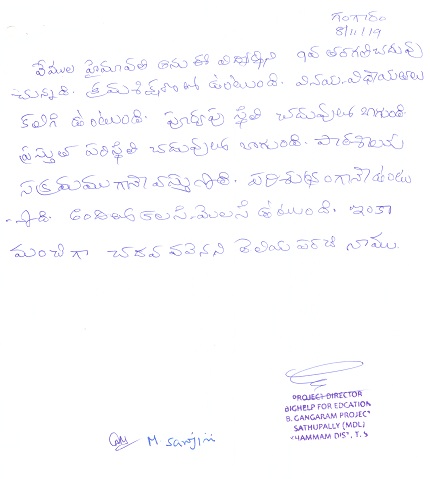 గంగారం
8/11/19
వేముల హైమావతి అను ఈ విద్యార్థిని 9వ తరగతి చదువు
చున్నది. క్రమశిక్షణతో ఉంటుంది. వినయ విధేయతలు
కలిగి ఉంటుంది. పూర్వపు స్థితి చదువులో బాగుంది
ప్రస్తుత పరిస్థితి చదువులో బాగుంది. పాఠశాలకు
సక్రమముగానే వస్తున్నది. పరిశుభ్రంగానే ఉంటు
న్నది. అందరితో కలసి-మెలసి ఉంటుంది. ఇంకా
మంచిగా చదవ వలెనని తెలియ పరచినాము.
PROJECT DIRECTOR
BIGHELP FOR EDCATION
B. GANGARAM PROJECT
SATHUPALLY (MDL)
KHAMMAM DIST, T. S
M. Sarojini